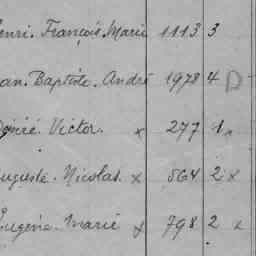 Henri. François. Marie 1113 3
Jean. Baptiste. André 1978 4 D
Désiré Victor. x 277 1 x
Auguste. Nicolas. x 564 2 x
Eugène. Marie x 798 2 x